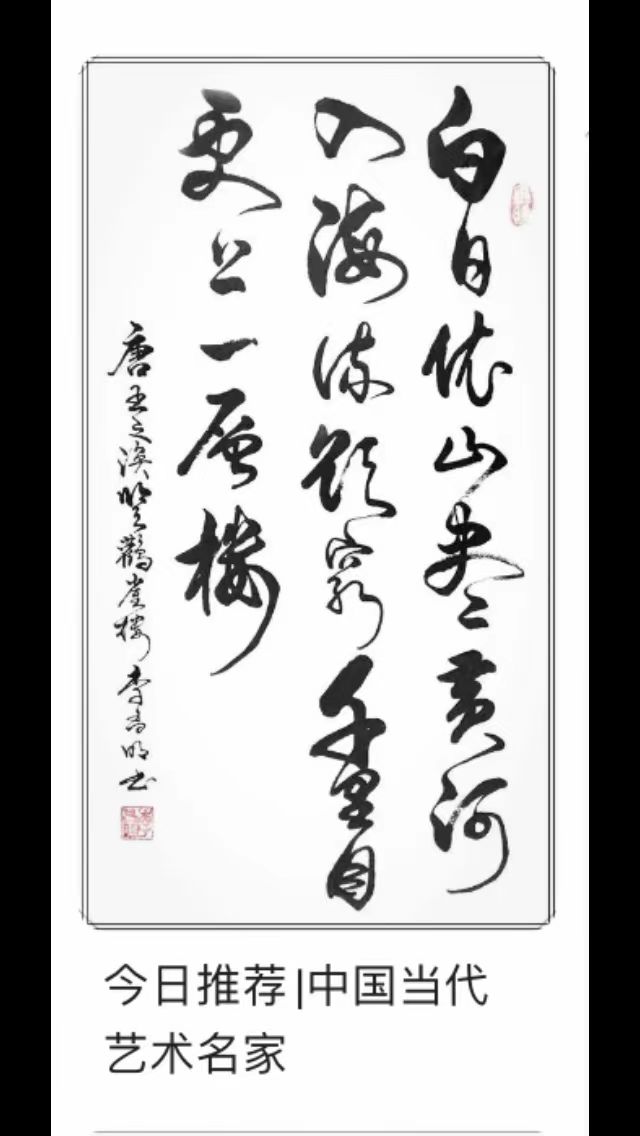 白日依山尽黄河
入海流欲穷千里目
更上一层楼
唐王之涣登鹳雀楼 李尚明书
今日推荐|中国当代
艺术名家